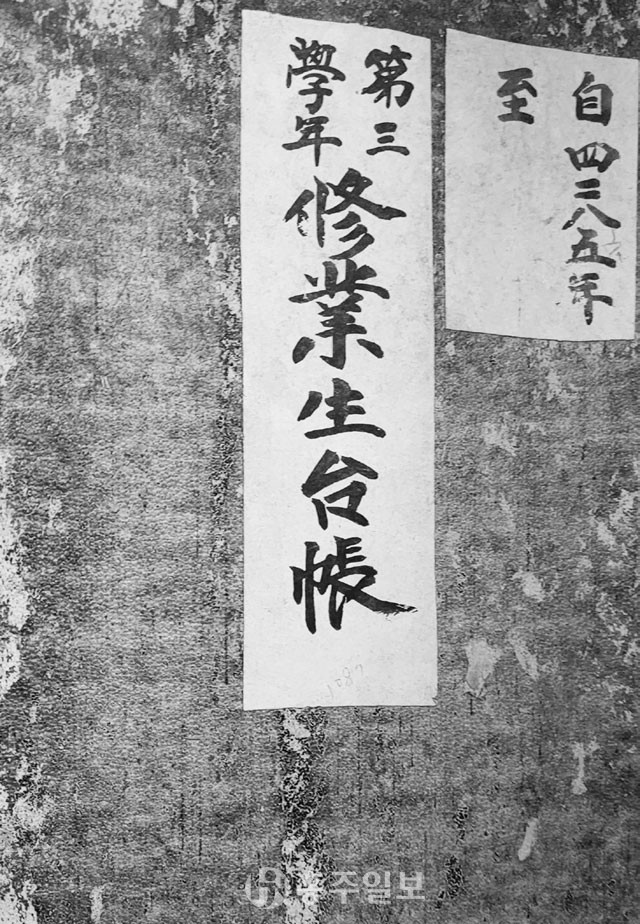 自四二八五年
至
第三
學年
修業生台帳